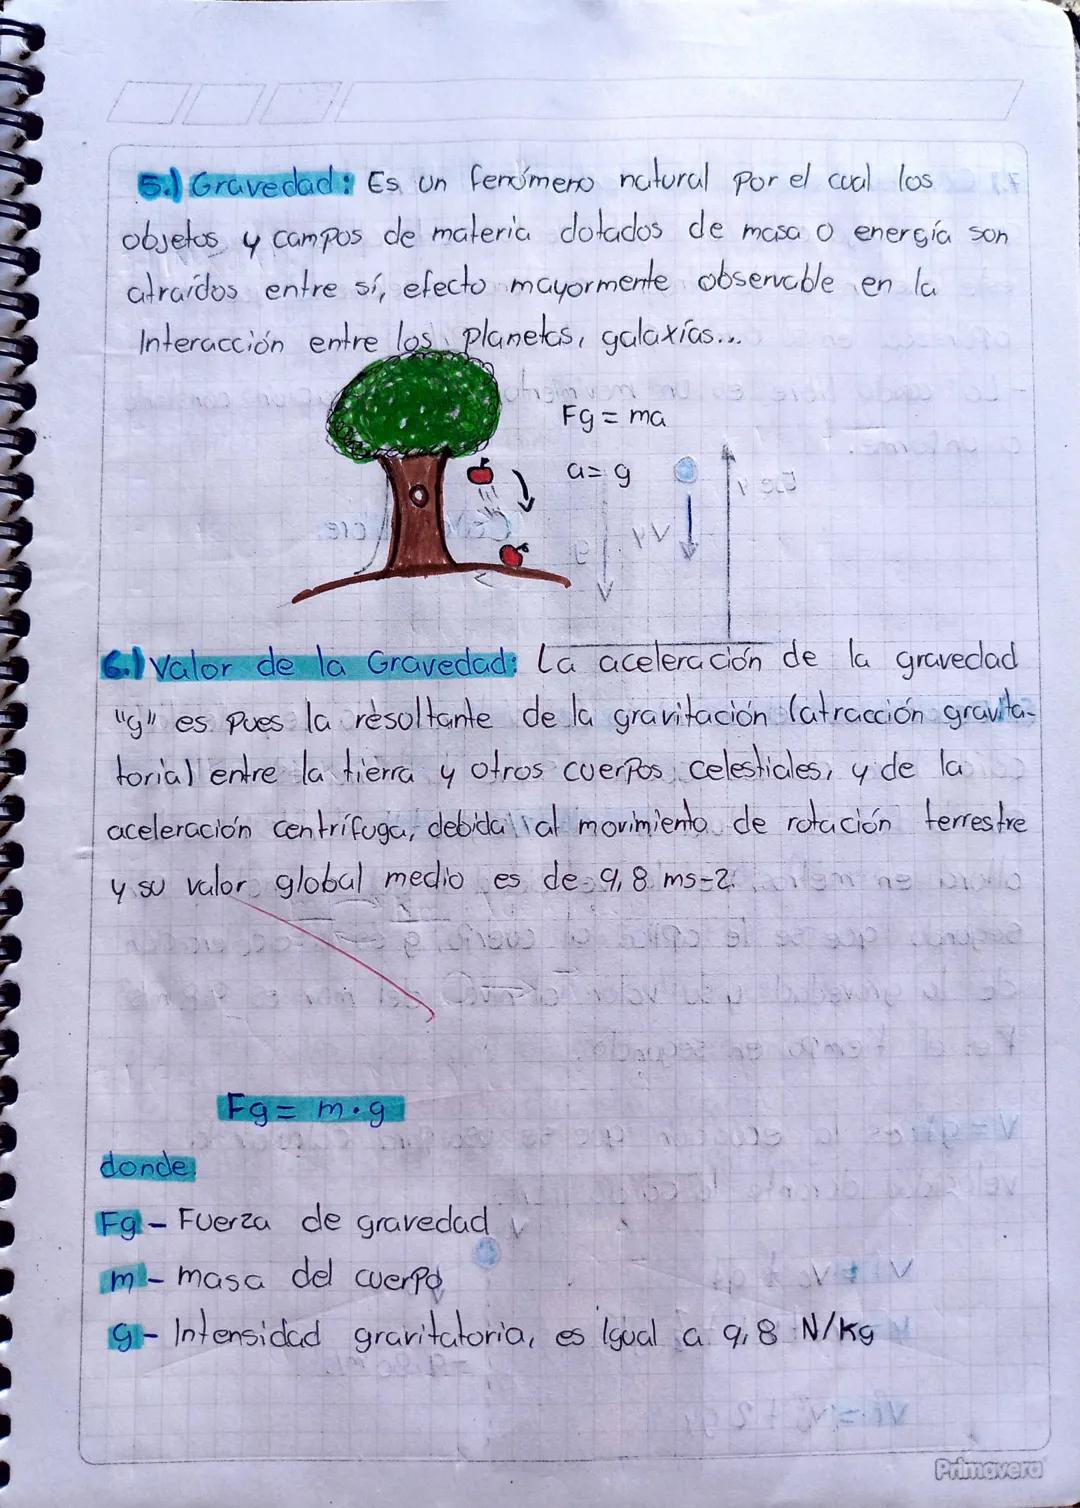 5.) Gravedad: Es un fenómeno natural por el cual los
objetos y campos de materia dotados de masa o energía son
atraídos entre sí, efecto mayormente observable en la
Interacción entre los planetas, galaxías...
Fg = ma
a= g
Eje y
Vy
g
6.) Valor de la Gravedad: La aceleración de la gravedad
"g" es pues la resultante de la gravitación (atracción gravita-
torial) entre la tierra y otros cuerpos celestiales, y de la
aceleración centrífuga, debida al movimiento de rotación terrestre
y su valor global medio es de 9,8 ms-2.
Fg = m·g
donde
Fg - Fuerza de gravedad
m - masa del cuerpo
g - Intensidad gravitatoria, es Igual a 9,8 N/Kg
Primavera